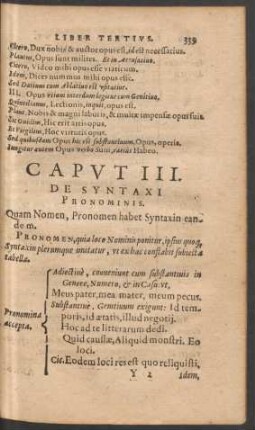 LIBER TERTIVS. 339
Cicero, Dux nobis & auctor opus est, id est necessarius.
Plautus, Opus sunt milites. Et in
Cicero, Video mihi opus esse viaticum.
Idem, Dices nummos mihi opus esse.
Sed Dativum cum Ablativo est vsitatius.
III. Opus etiam interdum legitur cum Genitivo,
Quinctilianus, Lectionis, inquit, opus est.
Nobis & magni laboris, & multæ impensæ opus fuit.
Sic Ovidius, Hic erit arti opus.
Et Virgilius, Hoc virtutis opus.
Sed quibusdam Opus hic est substantivum, Opus, operis.
Iungitur autem Opus verbo Sum, Habeo.
CAPVT III.
DE SYNTAXI
PRONOMINIS.
Quam Nomen, Pronomen habet Syntaxin ean-
dem.
PRONOMEN, quia loco Nominis ponitur, ipsius quoq,
Syntaxin plerumque imitatur, vt ex hac constabit subiecta
tabella.
Pronomina
accepta.
Adiectivè, conveniunt cum substantivis in
Genere, Numero, & in Casu. vt,
Meus pater, mea mater, meum pecus.
Substantivè, Genitivum exigunt: Id tem-
poris, id ætatis, illud negotij.
Hoc ad te litterarum dedi.
Quid causæ, Aliquid monstri. Eo
loci.
Cic. Eodem loci res est quo reliquisti,
Y 2 Idem,